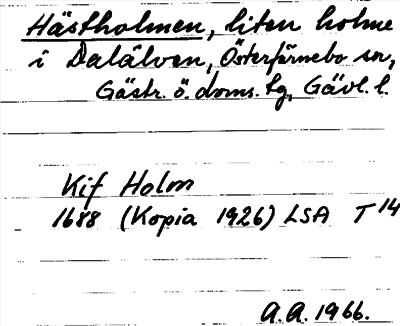 Hästholmen, liten holme
i Dalälven, Österfärnebo sn,
Gästr. ö. doms. tg, Gävl. l.
Kif Holm
1688 (Kopia 1926) LSA T 14
A.A. 1966.